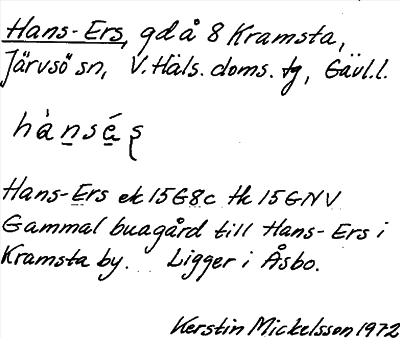 Hans-Ers, gd å 8 Kramsta,
Järvsö sn, V. Häls. doms. tg, Gävl.l.
hànsés̨
Hans-Ers ek 15G8c tk 15GNV
Gammal buagård till Hans-Ers i
Kramsta by. Ligger i Åsbo.
Kerstin Mickelsson 1972